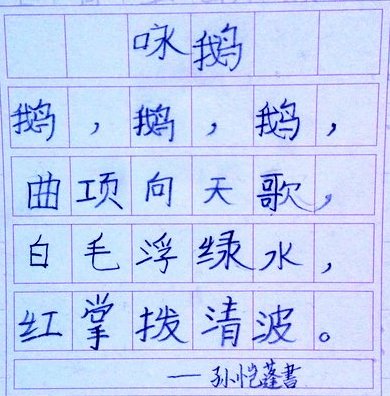 咏鹅
鹅，鹅，鹅，
曲项向天歌，
白毛浮绿水，
红掌拨清波。
——孙恺蓬書